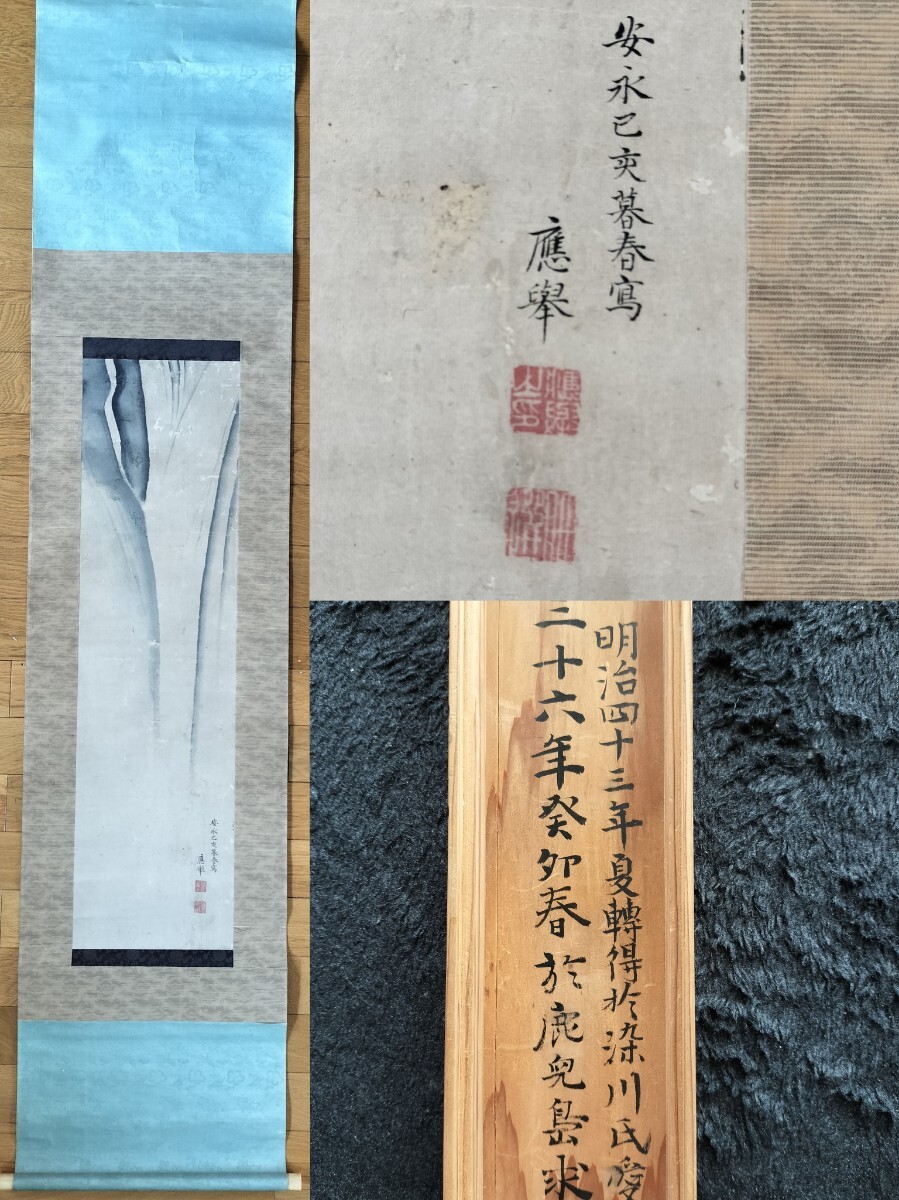 安永己亥暮春寫
應舉
應舉之印
仲選
明治四十三年夏轉得於染川氏愛
二十六年癸卯春於鹿兒島求